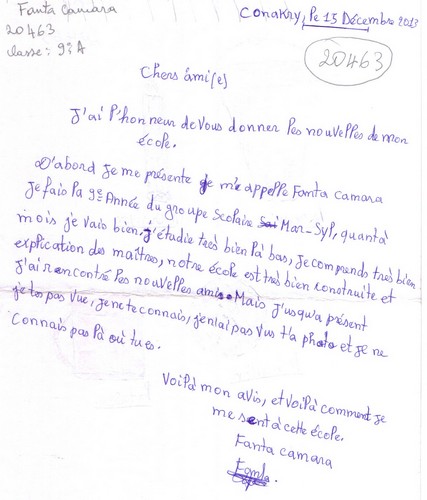 Fanta Camara
20463
classe: 9è A
Conakry, le 15 Décembre 2013
20463
Chers ami(e)
J'ai l'honneur de vous donner les nouvelles de mon
école.
D'abord je me présente je m'appelle Fanta Camara
je fais la 9è Année du groupe Scolaire Mar-Syl, quanta
mois je vais bien, j'étudie très bien là bas, je comprends très bien
explication des maîtres, notre école est très bien construite et
j'ai rencontré les nouvelles amis. Mais j'usqu'a présent
je t'es pas vue, je ne te connais, je n'ai pas vus t'a photo et je ne
connais pas là où tu es.
Voilà mon avis, et voilà comment je
me sent à cette école.
Fanta camara